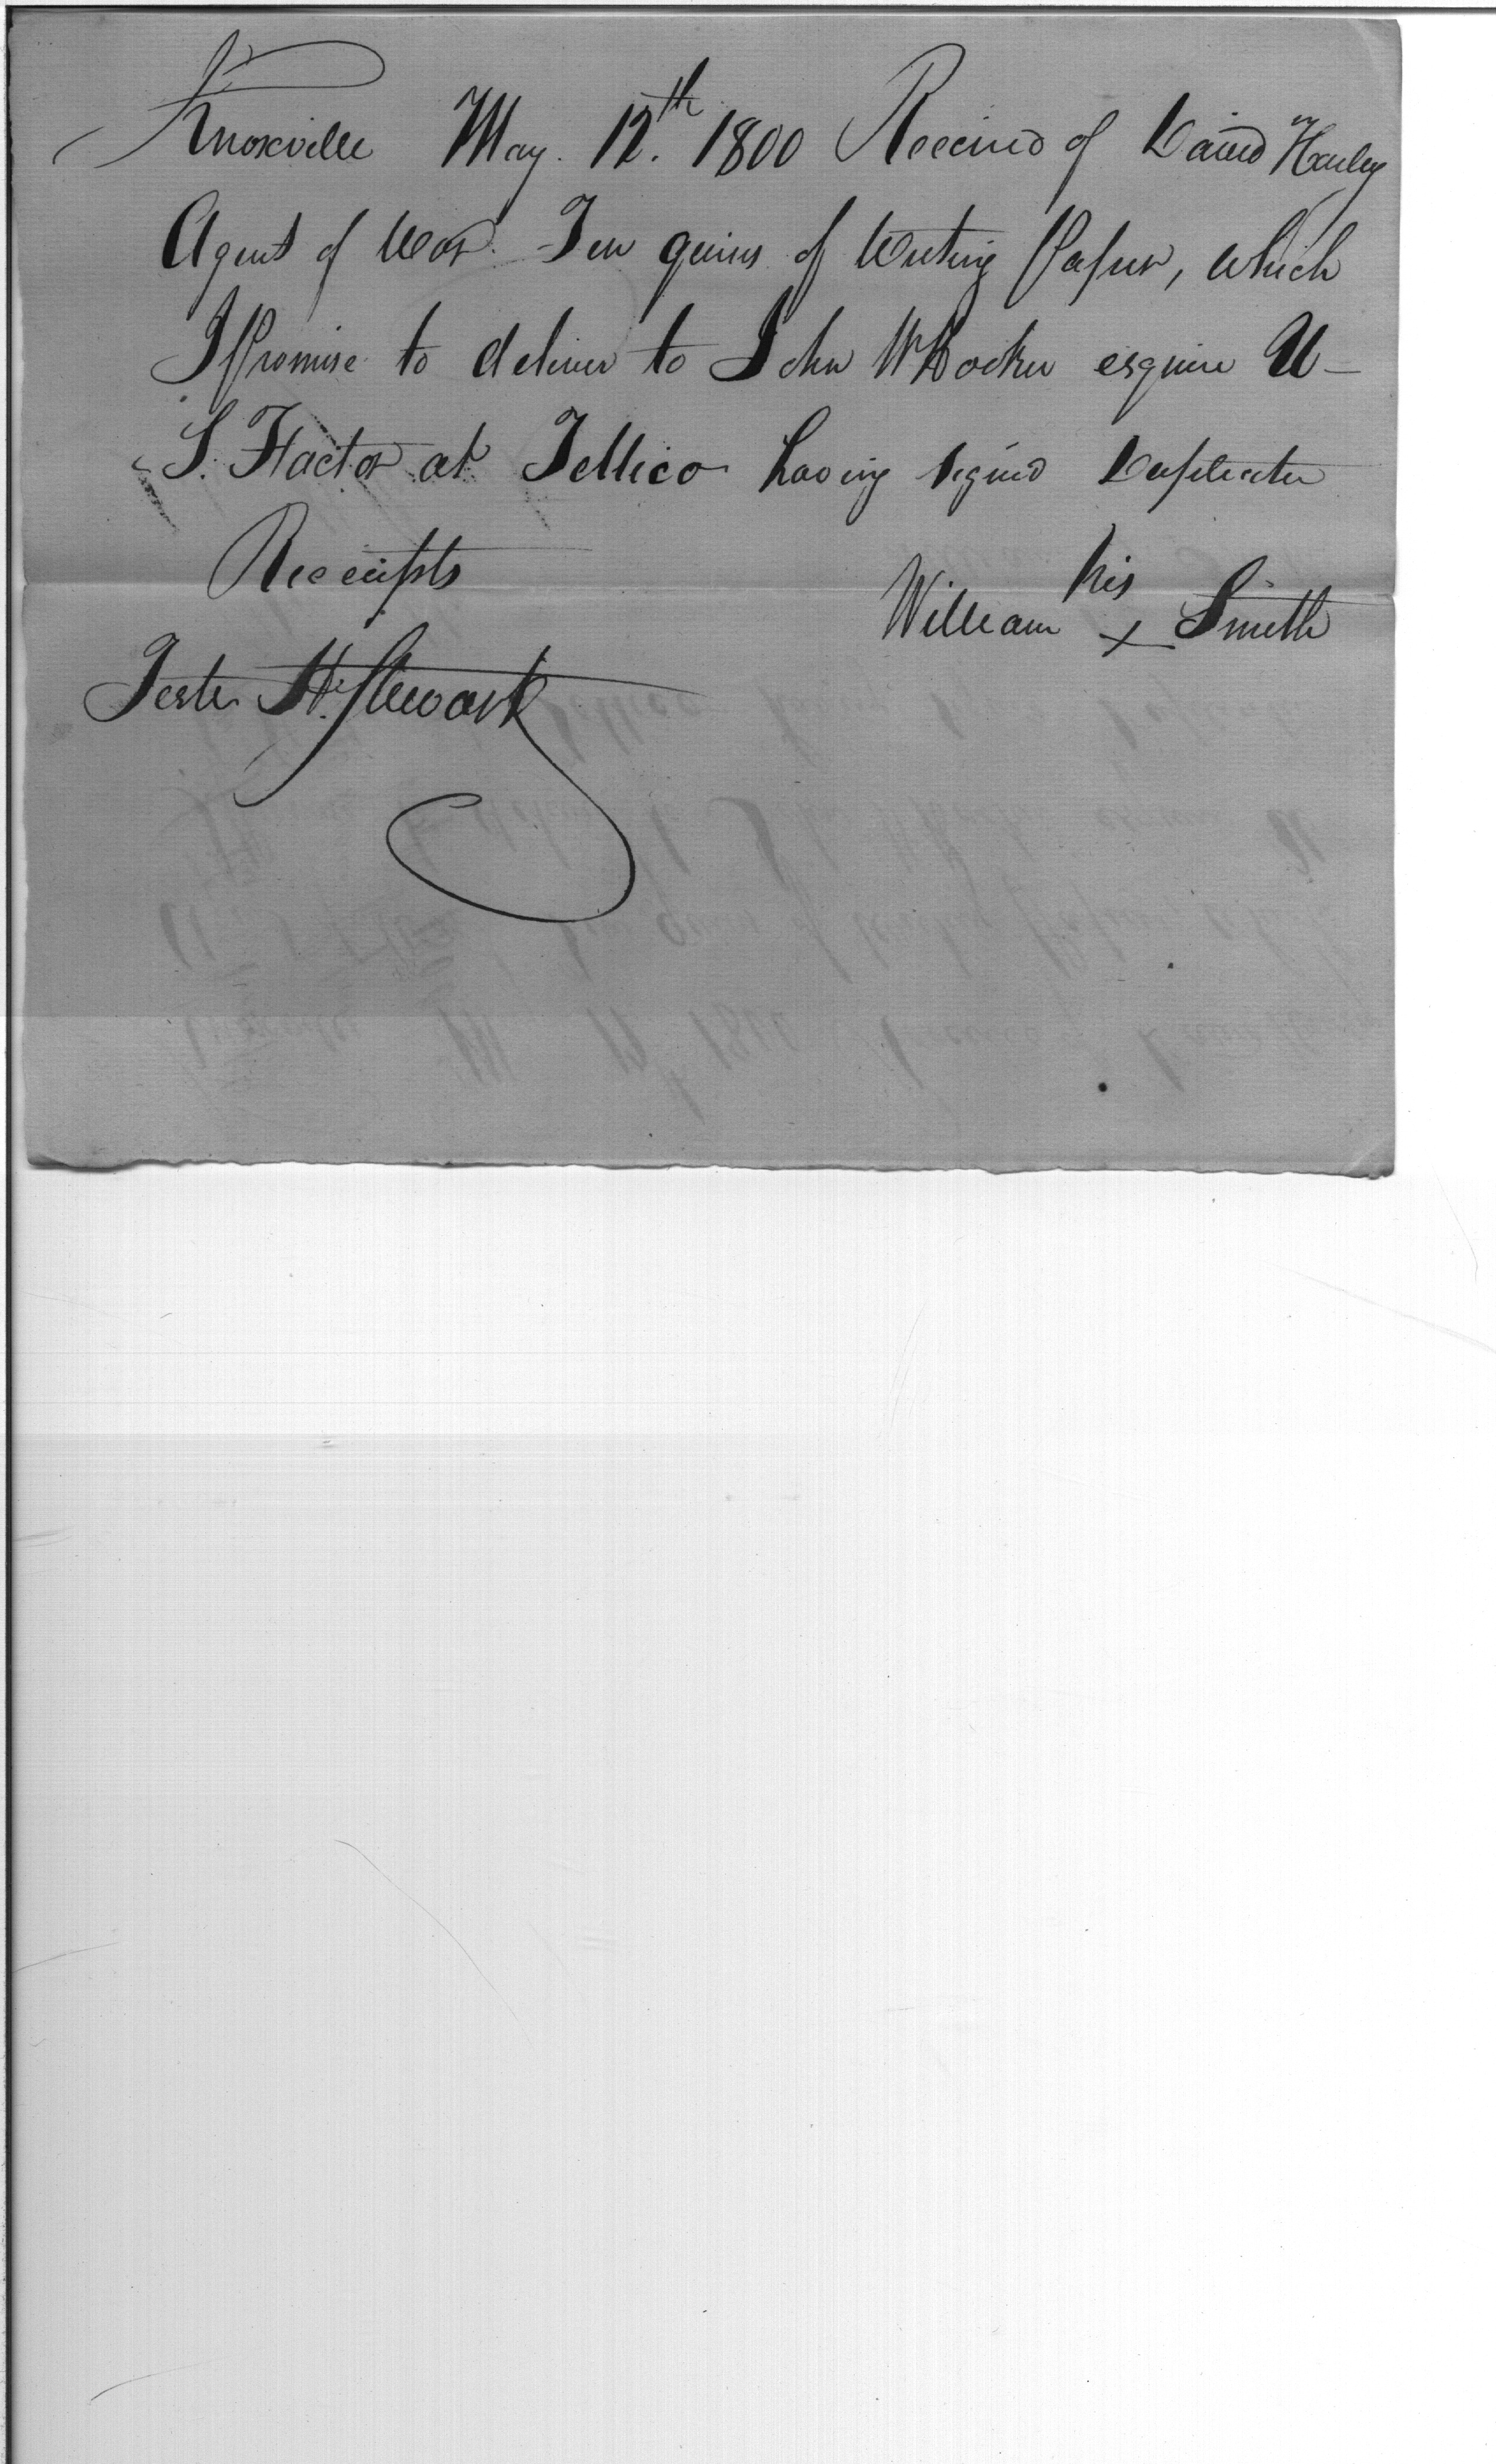 Knoxville May. 12.th 1800 Received of David Henley
Agent of War. Ten quires of Writing Paper, which
I Promise to deliver to John W Hooker esquire U-
S. Factor at Tellico having signed Duplicate
Receipts
his
William x Smith
Teste H. Stewart